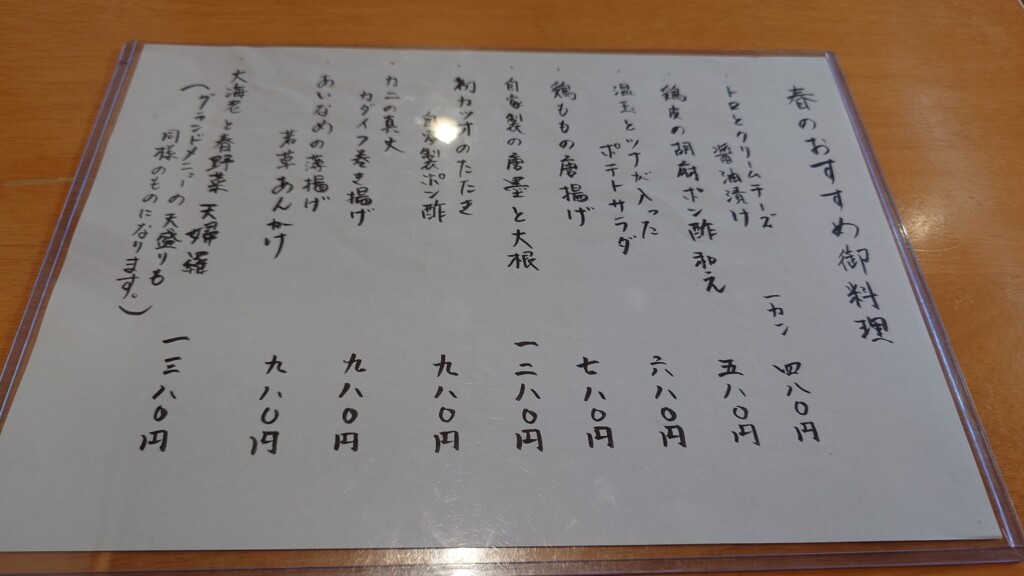 春のおすすめ御料理
トロとクリームチーズ
醤油漬け
一カン 四八〇円
鶏皮の胡麻ポン酢和え 五八〇円
温玉とツナが入った
ポテトサラダ 六八〇円
鶏ももの唐揚げ 七八〇円
自家製の唐墨と大根 一二八〇円
初カツオのたたき
自家製ポン酢 九八〇円
カニの真丈
カダイフ巻き揚げ 九八〇円
あいなめの薄揚げ
若草あんかけ 九八〇円
大海老と春野菜 天婦羅
(グランドメニューの天盛りも
同様のものになります。) 一三八〇円